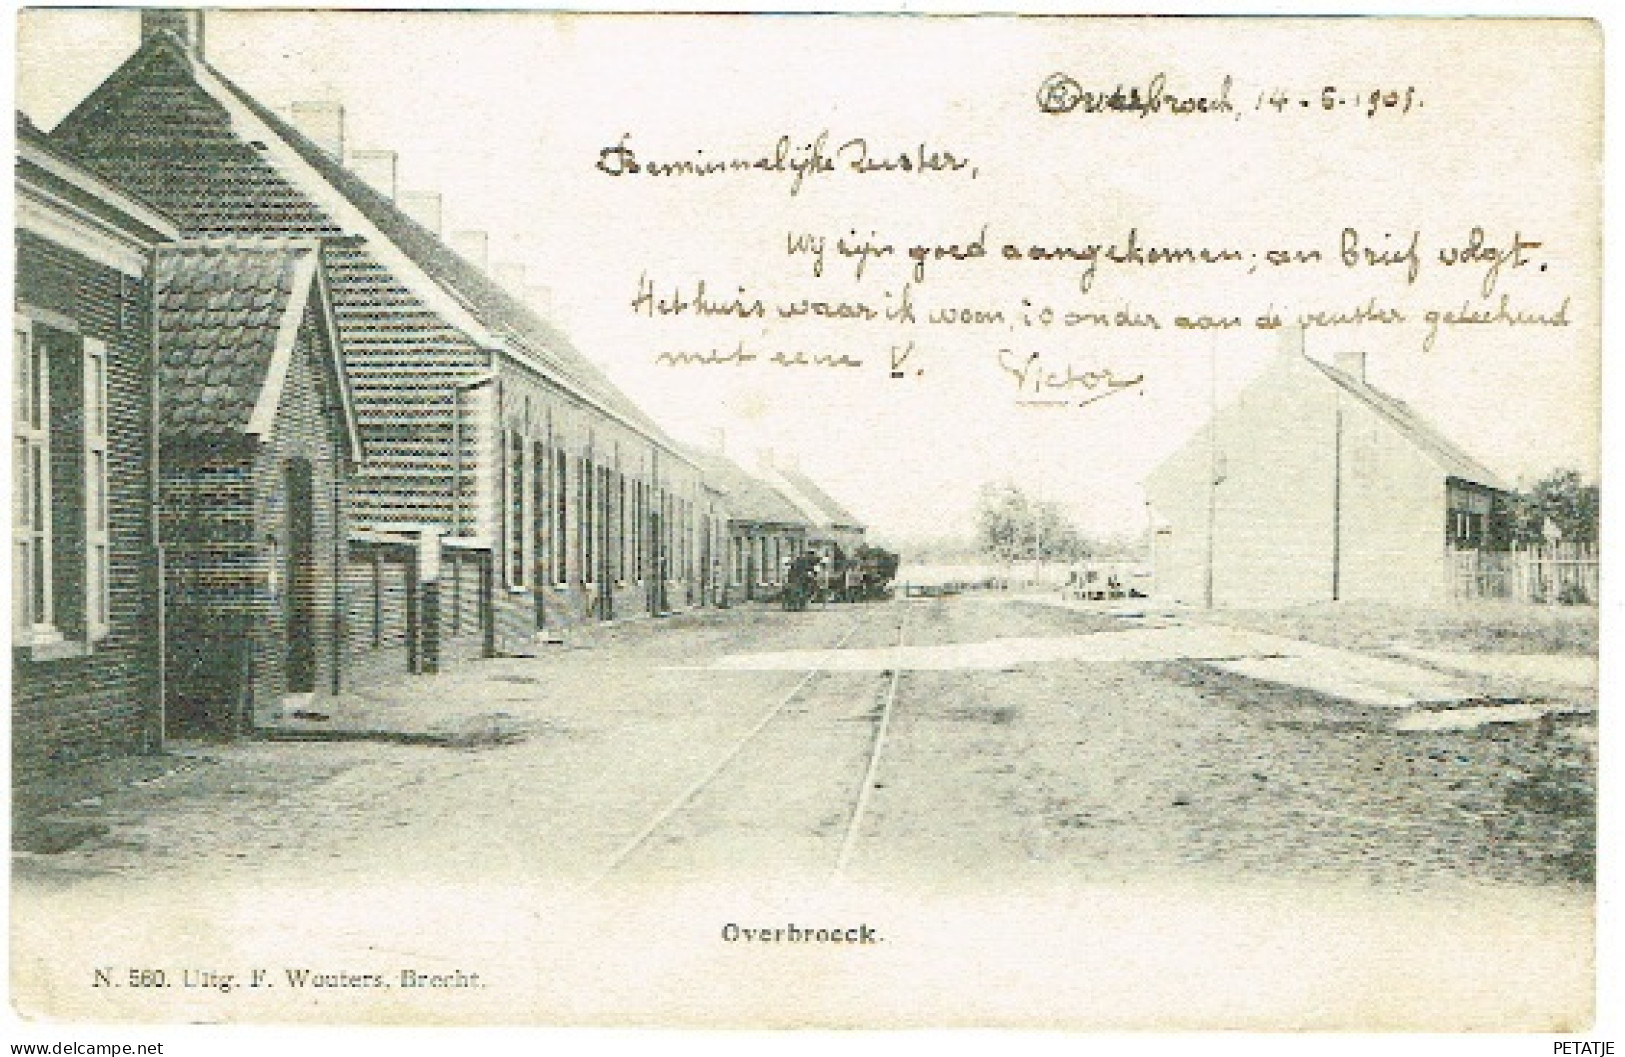 Overbroeck, 14-6-1905.
Beminnelijke Zuster,
Wy zijn goed aangekomen, en brief volgt.
Het huis, waar ik woon, is onder aan de venster geteekend
met eene V. Victor.
Overbroeck.
N. 560. Uitg. F. Wouters, Brecht.
delcampe.com
PETATJE